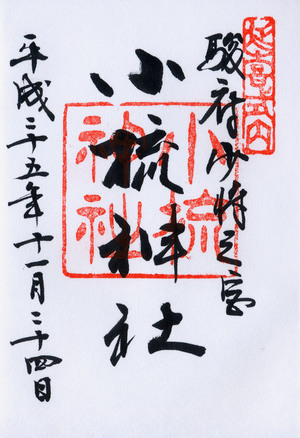 延喜式内
駿府少将之宮
小梳神社
小梳神社
平成二十五年十一月二十四日